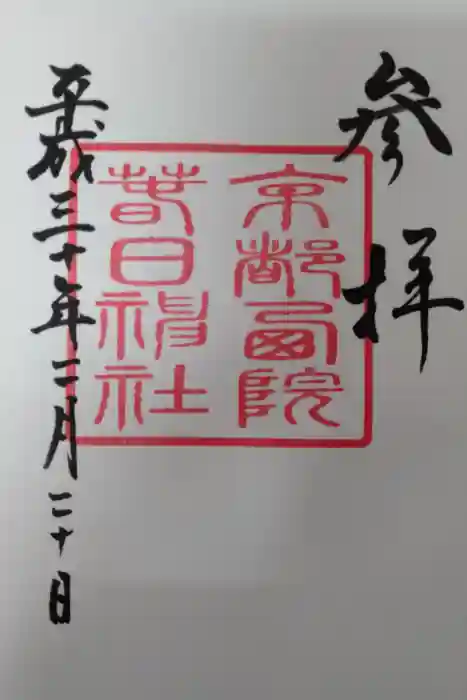 参拝
京都西院
春日神社
平成三十年二月二十日